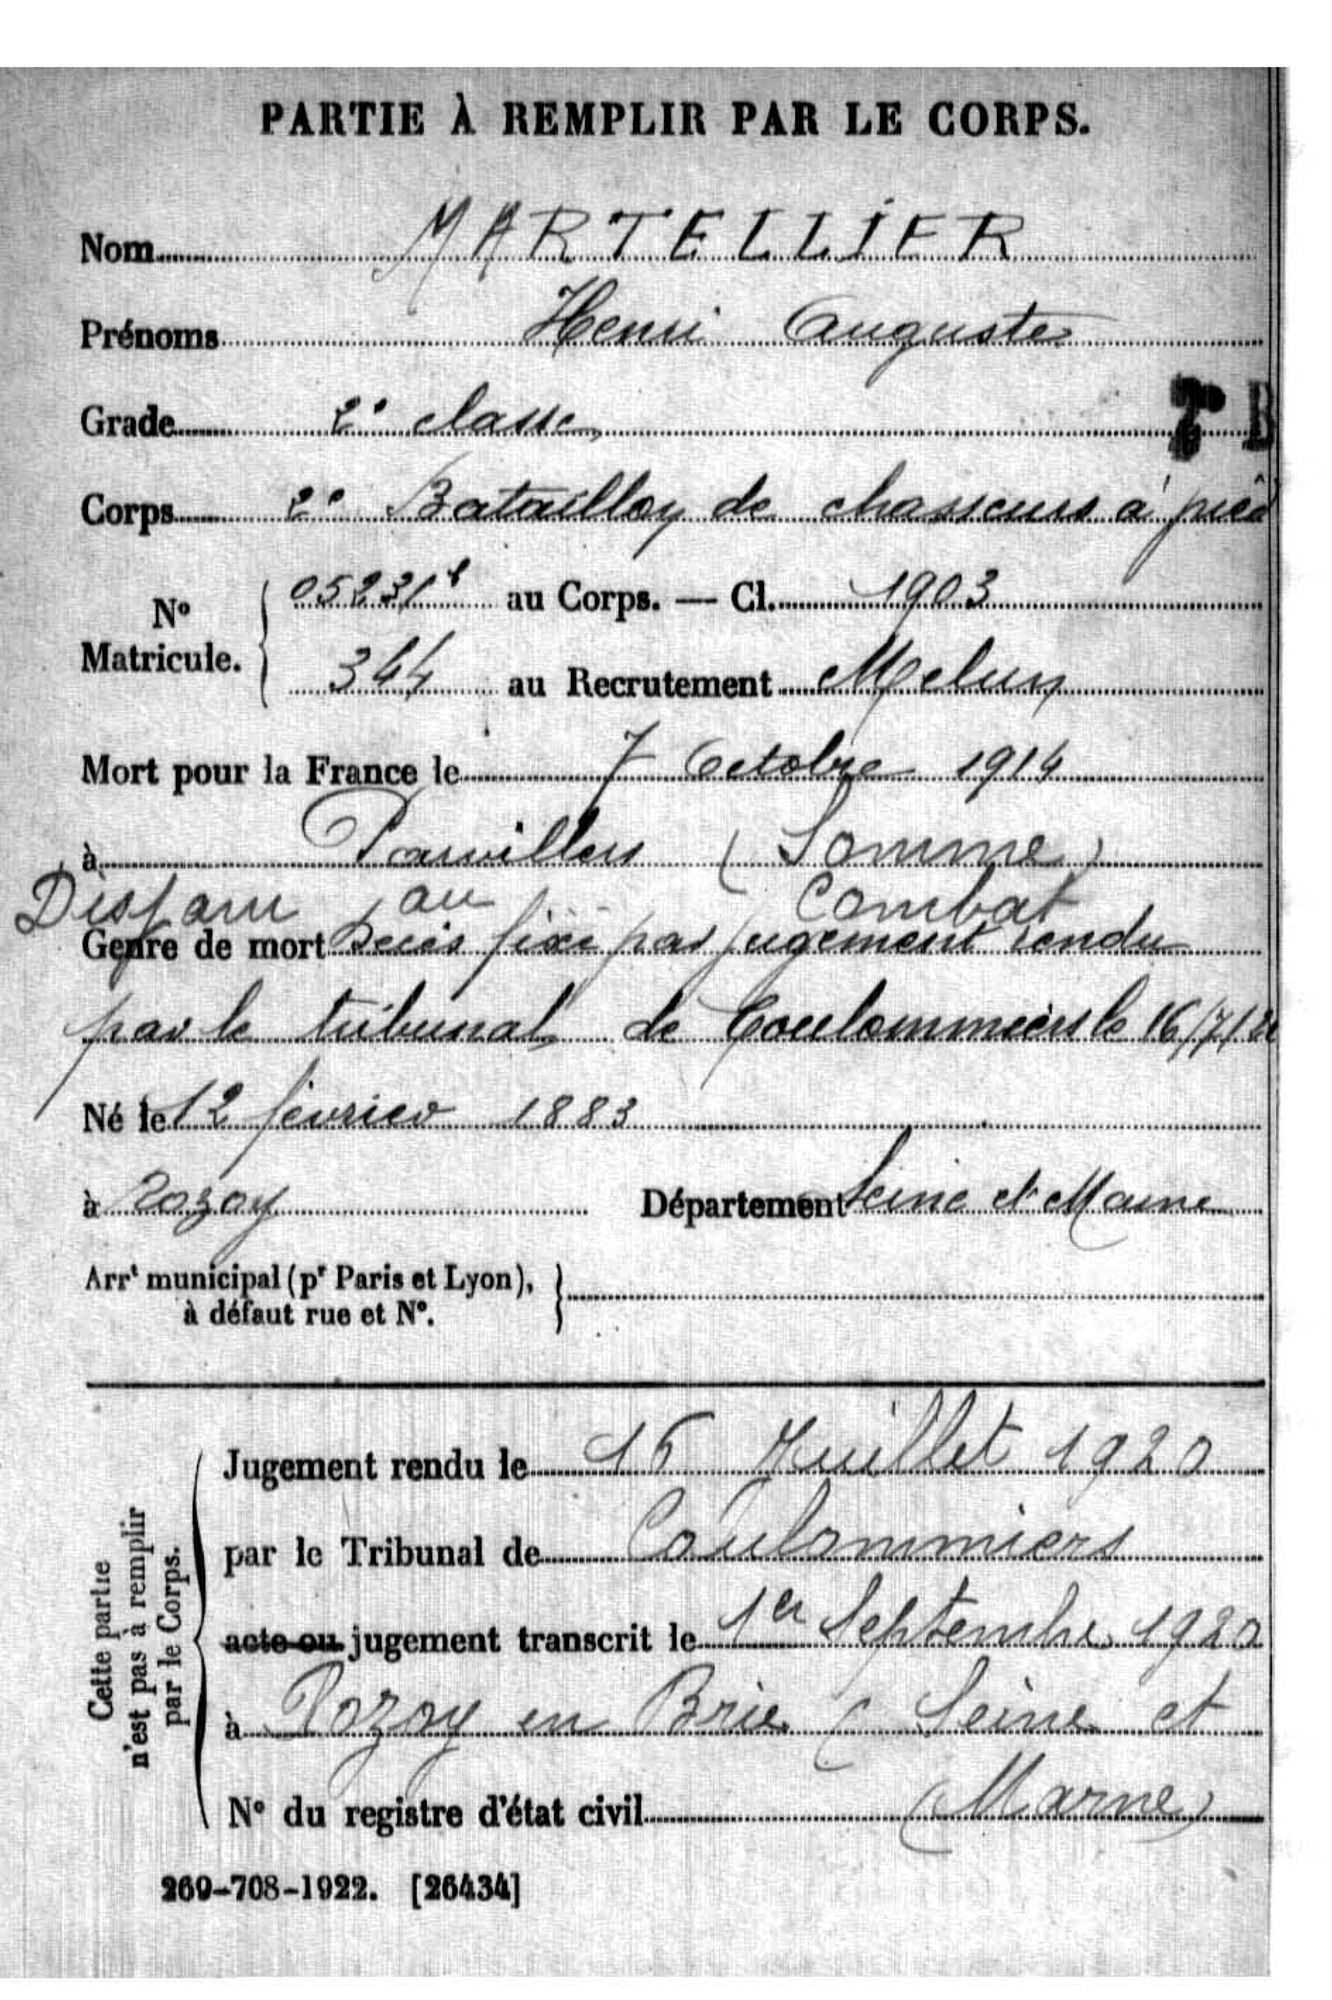 PARTIE À REMPLIR PAR LE CORPS.
Nom MARTELLIER
Prénoms Henri Auguste
Grade 2e classe
Corps 2e Bataillon de chasseurs à pied
No Maticule. 05231 au Corps. — Cl. 1903
344 au Recrutement Melun
Mort pour la France le 7 Octobre 1914
à Parvillers (Somme)
Disparu au combat
Genre de mort Décès fixé par jugement rendu
par le tribunal de Coulommiers le 16/7/20
Né le 12 février 1883
à Rozoy Département Seine et Marne
Arrt municipal (pr Paris et Lyon),
à défaut rue et No.
Cette partie
n'est pas à remplir
par le Corps.
Jugement rendu le 16 Juillet 1920
par le Tribunal de Coulommiers
acte ou jugement transcrit le 1er Septembre 1920
à Rozoy en Brie (Seine et
Marne)
No du registre d'état civil
269-708-1922. [26434]